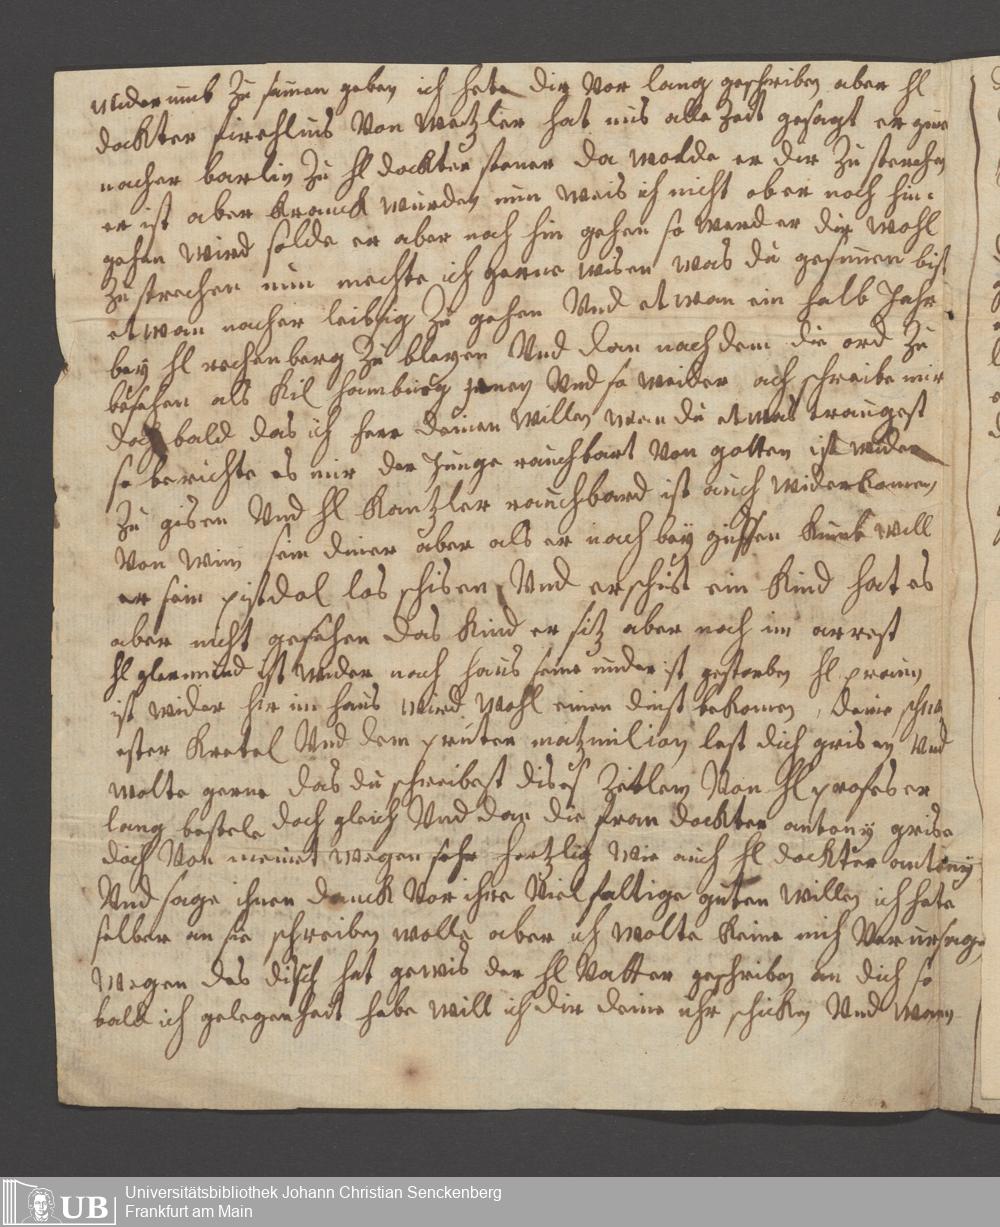 widerumb zu samen geben ich hete dir vor lang geschriben aber hl
dockter firehlius von wetzler hat uns alle zeit gesagt er
nacher barlin zu hl dockter da wolde er dir zu sprechen
er ist aber kranck wurden nun weis ich nicht ober noch hin-
gehen wird solde er aber noch hin gehen so werd er dir wohl
zu sprechen nun mechte ich gerne wisen was du gesinnen bist
etwan nacher leibzig zu gehen und etwan ein halb Jahr
bey hl rechenberg zu bleyen und dan nach dem die ord zu
besehen als kil hamburg jenen und so weider ach schreibe mir
doch bald das ich here deinen willen wen du etwas traugest
so berichte es mir der junge rauchbart von gotten ist wider
zu gisen und hl kantzler rauchbard ist auch widerkomen
von wein sein diner aber als er noch bey gissen kumt will
er sein pistdol los schisen und erschist ein kind hat es
aber nicht gesehen das kind er sitz aber noch im arrest
hl glermund ist wider nach haus seine muder ist gestorben hl
ist wider hir im haus wird wohl einen dinst bekomen, deine schw
ester kretel und dein pruter matzmilion lest dich grisen und
wolte gerne das du schreibest dises zeitlem von hl profeser
lang bestele doch gleich und dan die frau dockter antony grise
doch von meinet wegen sehr hertzlig wie auch hl dockter antony
und sage ihnen danck vor ihre viel faltige guten willen ich hete
selber an sie schreiben wolle aber ich wolte keine mich verursage
wegen des disch hat gewis der hl vatter geschriben an dich so
bald ich gelegenheit habe will ich dir deine uhr schicken und wann
Universitätsbibliothek Johann Christian Senckenberg
Frankfurt am Main
UB